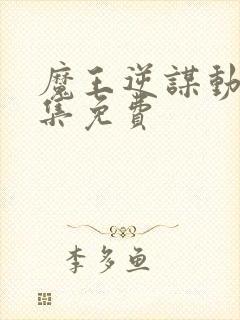 魔王逆謀動
集免費
李多鱼